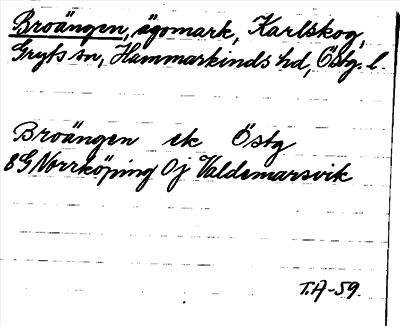 Broängen, ägomark, Karlskog,
Gryts sn, Hammarkinds hd, Östg. l.
Broängen ek Östg
8G Norrköping 0j Valdemarsvik
T.A-59